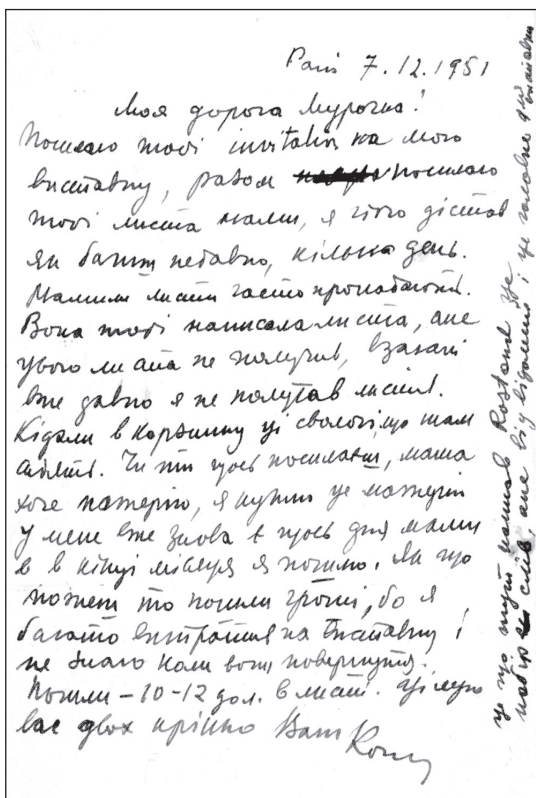 Paris 7.12.1951
Моя дорога Мурочка!
Посилаю тобі invitation на мою
виставку, разом посилаю
тобі листа мами, я його дістав
як бачиш недавно, кілька день.
Мамини листи часто пропадають.
Вона тобі написала листа, але
цього листа не получив, взагалі
вже давно я не получав листів.
Кідали в корзинку ці сволочі, що там
сидять. Чи ти щось посилаєш, мама
хоче матерію, я купив це матерії
У мене вже знова є щось для мами
в кінці місяця я пошлю. Як що
можеш то пошли гроші, бо я
багато витратив на виставку і
не знаю коли вони повернуться.
Пошли – 10-12 дол. в листі. Цілую
вас двох кріпко Ваш
це що тут написав Rostand це
набір слів, але відомий і це головно для виставки